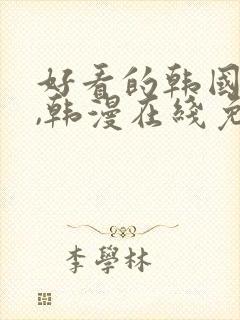 好看的韩国
,韩漫在线免
李學林